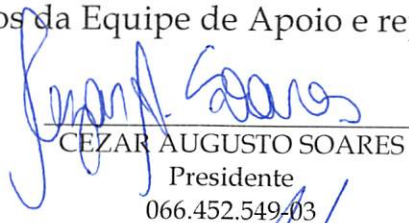 os da Equipe de Apoio e re
Cezar A. Soares
CEZAR AUGUSTO SOARES
Presidente
066.452.549-03